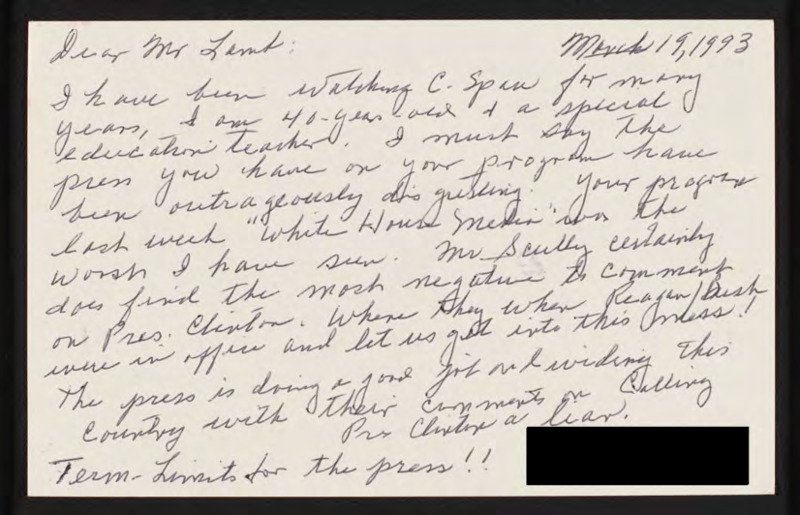 Dear Mr Lamb:
March 19, 1993
I have been watching C-Span for many
years, I am 40-year-old & a special
education teacher. I must say the
press you have on your program have
been outrageously disgusting. Your program
last week "White House Media" was the
worst I have seen. Mr Scully certainly
does find the most negative to comment
on Pres. Clinton. Where they when Reagan/Bush
were in office and let us get into this mess!
The press is doing a good job on dividing this
country with their comments on Calling
Pres Clinton a liar.
Term-Limits for the press!!